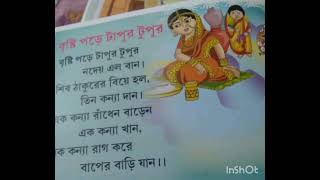 বৃষ্টি পড়ে টাপুর টুপুর
বৃষ্টি পড়ে টাপুর টুপুর
নদেয় এল বান।
শিব ঠাকুরের বিয়ে হল,
তিন কন্যা দান।
এক কন্যা রাঁধেন বাড়েন
এক কন্যা খান,
এক কন্যা রাগ করে
বাপের বাড়ি যান।।
InShOt